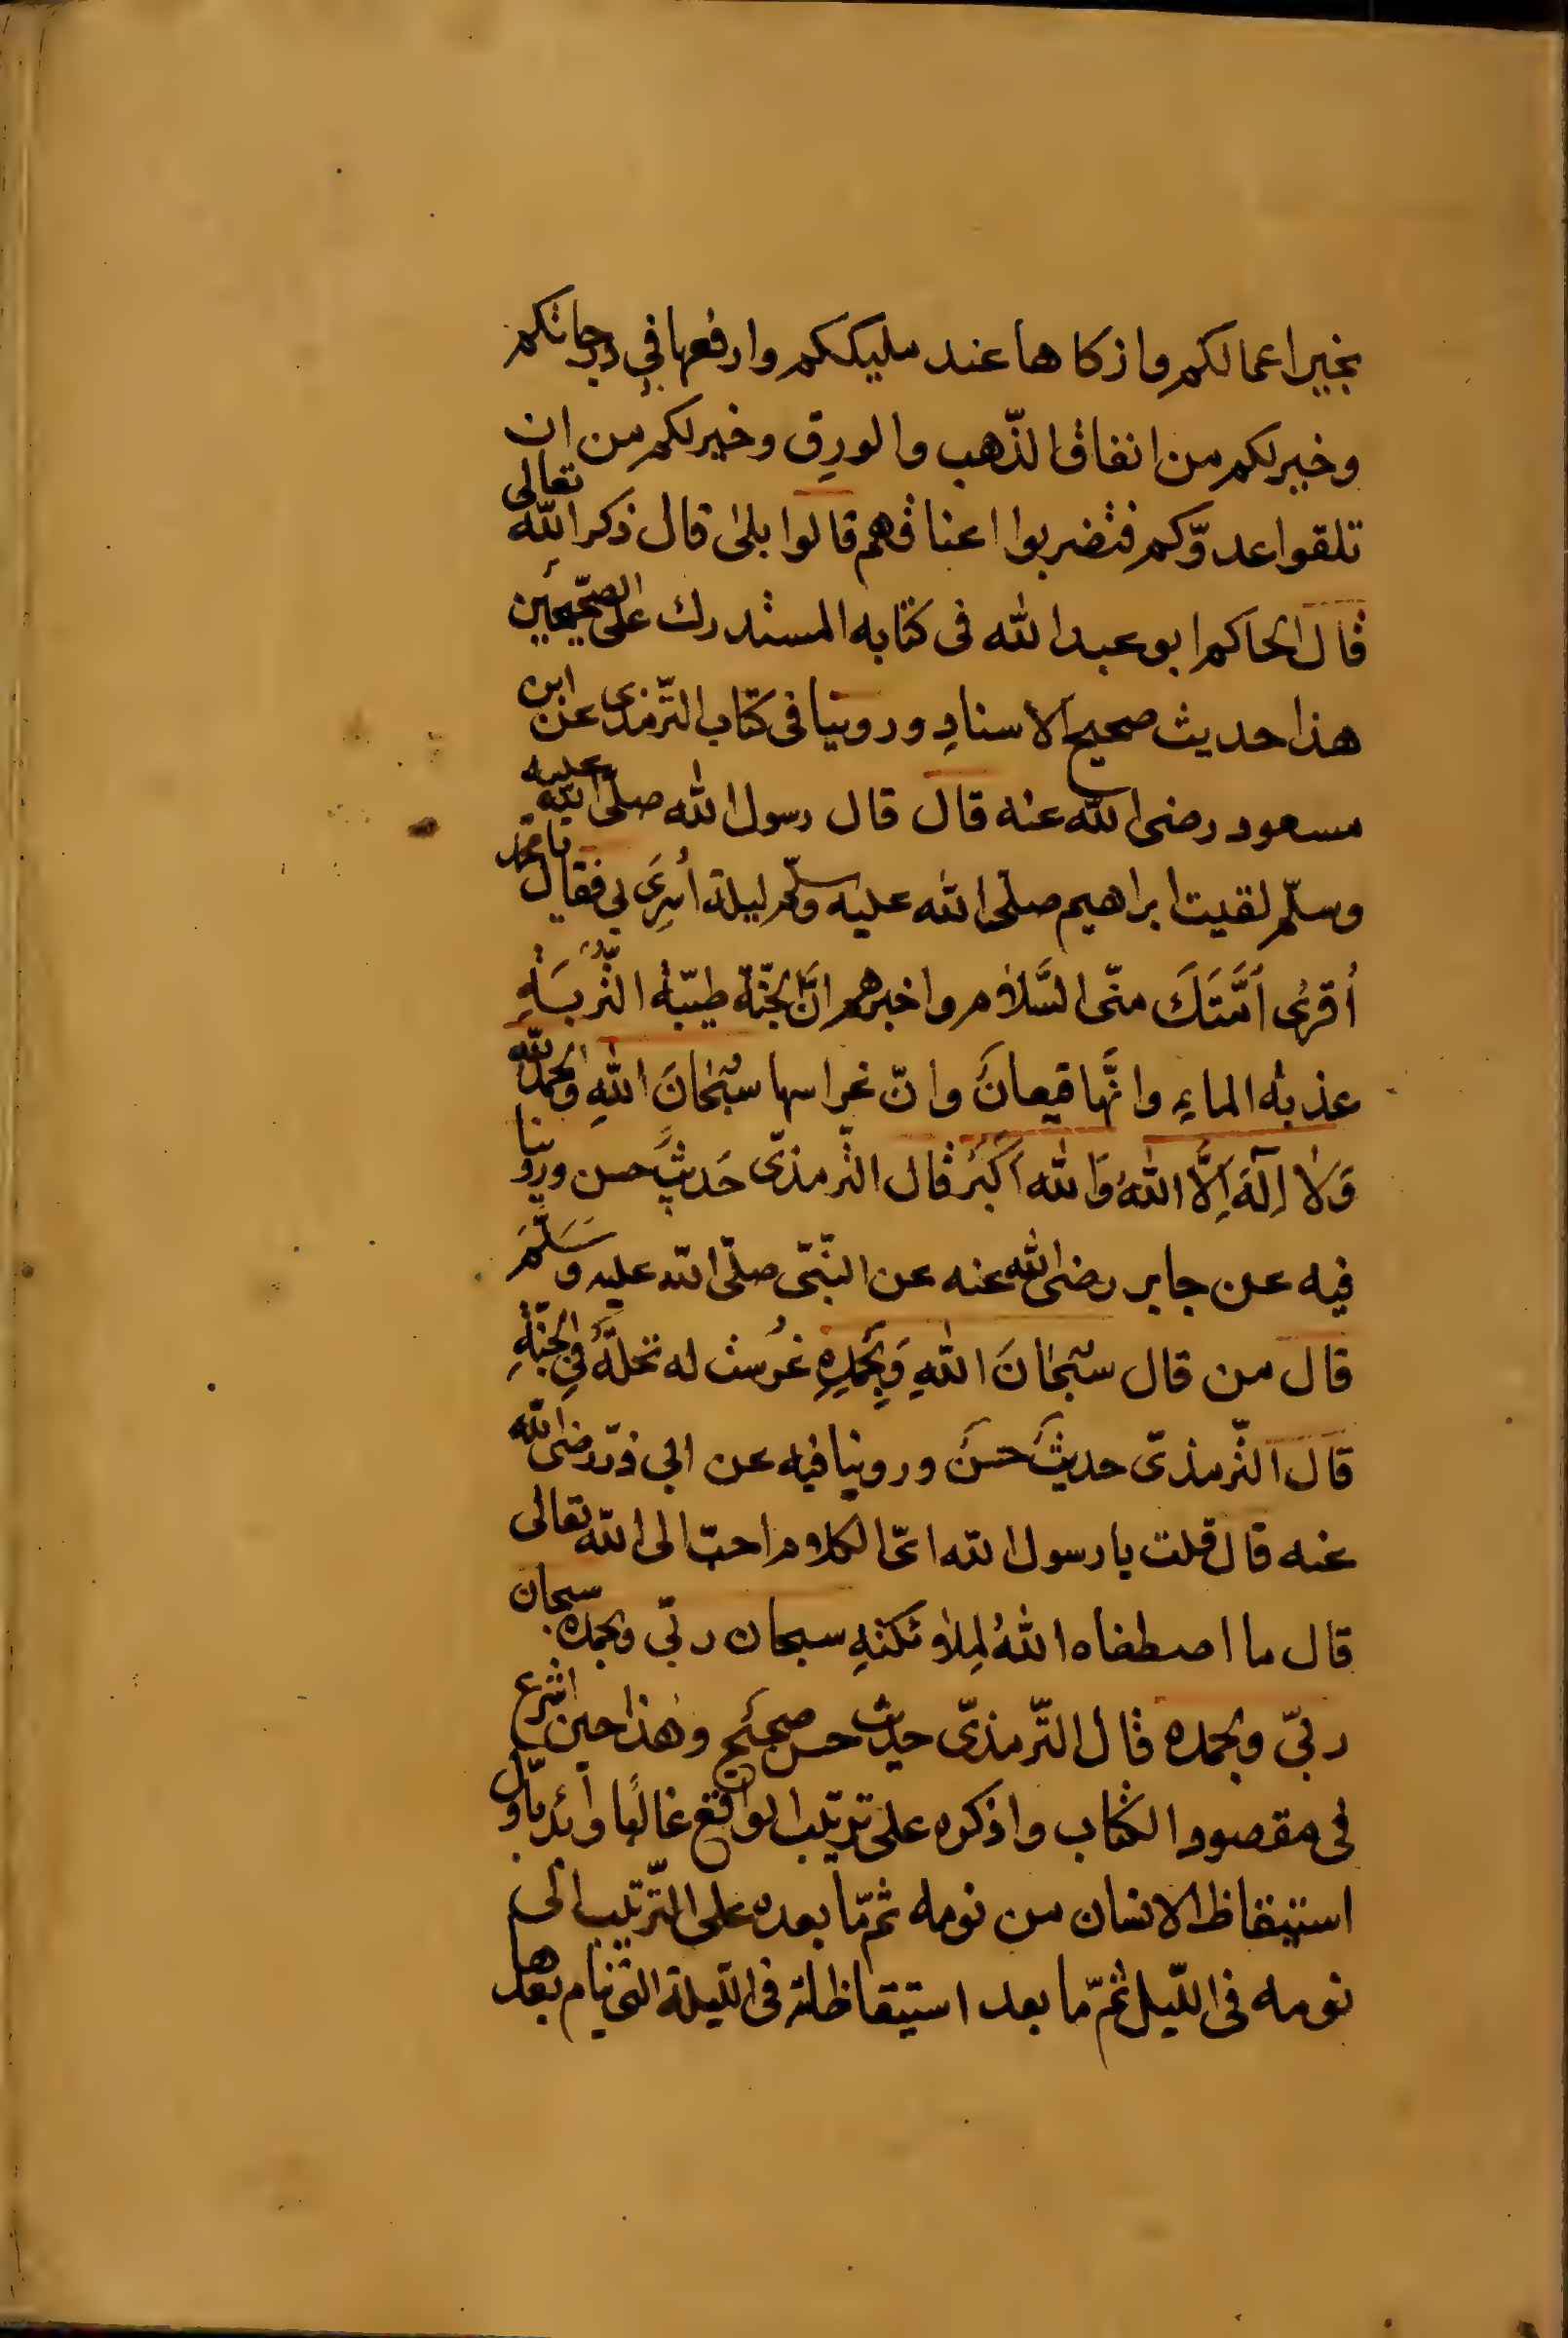 بخير اعمالكم وازكاها عند مليككم وارفعها في درجاتكم
وخير لكم من انفاق الذّهب والورِق وخير لكم من ان
تلقوا عدوّكم فتضربوا اعناقهم قالوا بلىٰ قال ذكر الله تعالى
قال الحاكم ابو عبد الله فى كتابه المستدرك على الصّحيحين
هذا حديث صحيح الاسنادِ وروينا فى كتاب التّرمذى عن ابن
مسعود رضى الله عنه قال قال رسول الله صلّى الله عليه
وسلّم لقيت ابراهيم صلّى الله عليه وسلّم ليلة أُسرِىَ بي فقال يا محمّد
أقرئ أمّتَكَ منّى السَّلام واخبرهم انَّ الجنّة طيّبة التُّربَةِ
عذبة الماءِ وانَّها قيعانٌ وانّ غراسها سُبْحَانَ اللهِ والحمد لله
وَلاٰ اِلٓهَ اِلَّا اللهُ وَاللهُ اَكْبَرُ قال التّرمذىّ حَديثٌ حسن وروينا
فيه عن جابر رضى الله عنه عن النّبىّ صلّى الله عليه وَسَلَّمَ
قال من قال سُبْحَانَ اللهِ وَبِحَمْدِهِ غُرِسَت له نخلةٌ فِي الجنّةِ
قال التّرمذىّ حديثٌ حسَنٌ وروينا فيه عن ابى ذرّ رضى الله
عنه قال قلت يا رسول الله اىّ الكلام احبّ الى الله تعالى
قال ما اصطفاه اللهُ لِملاۤئكتهِ سبحان ربّى وبحمده سبحان
ربّى وبحمده قال التّرمذىّ حديث حسن صحيح وهٰذا حين اشرع
فى مقصود الكتاب واذكره على ترتيب الواقع غالبًا وأبدأ باوّل
استيقاظ الانسان من نومه ثمّ ما بعده على التّرتيب الى
نومه فى اللّيل ثمّ ما بعد استيقاظاته فى اللّيلة التى ينام بعدها